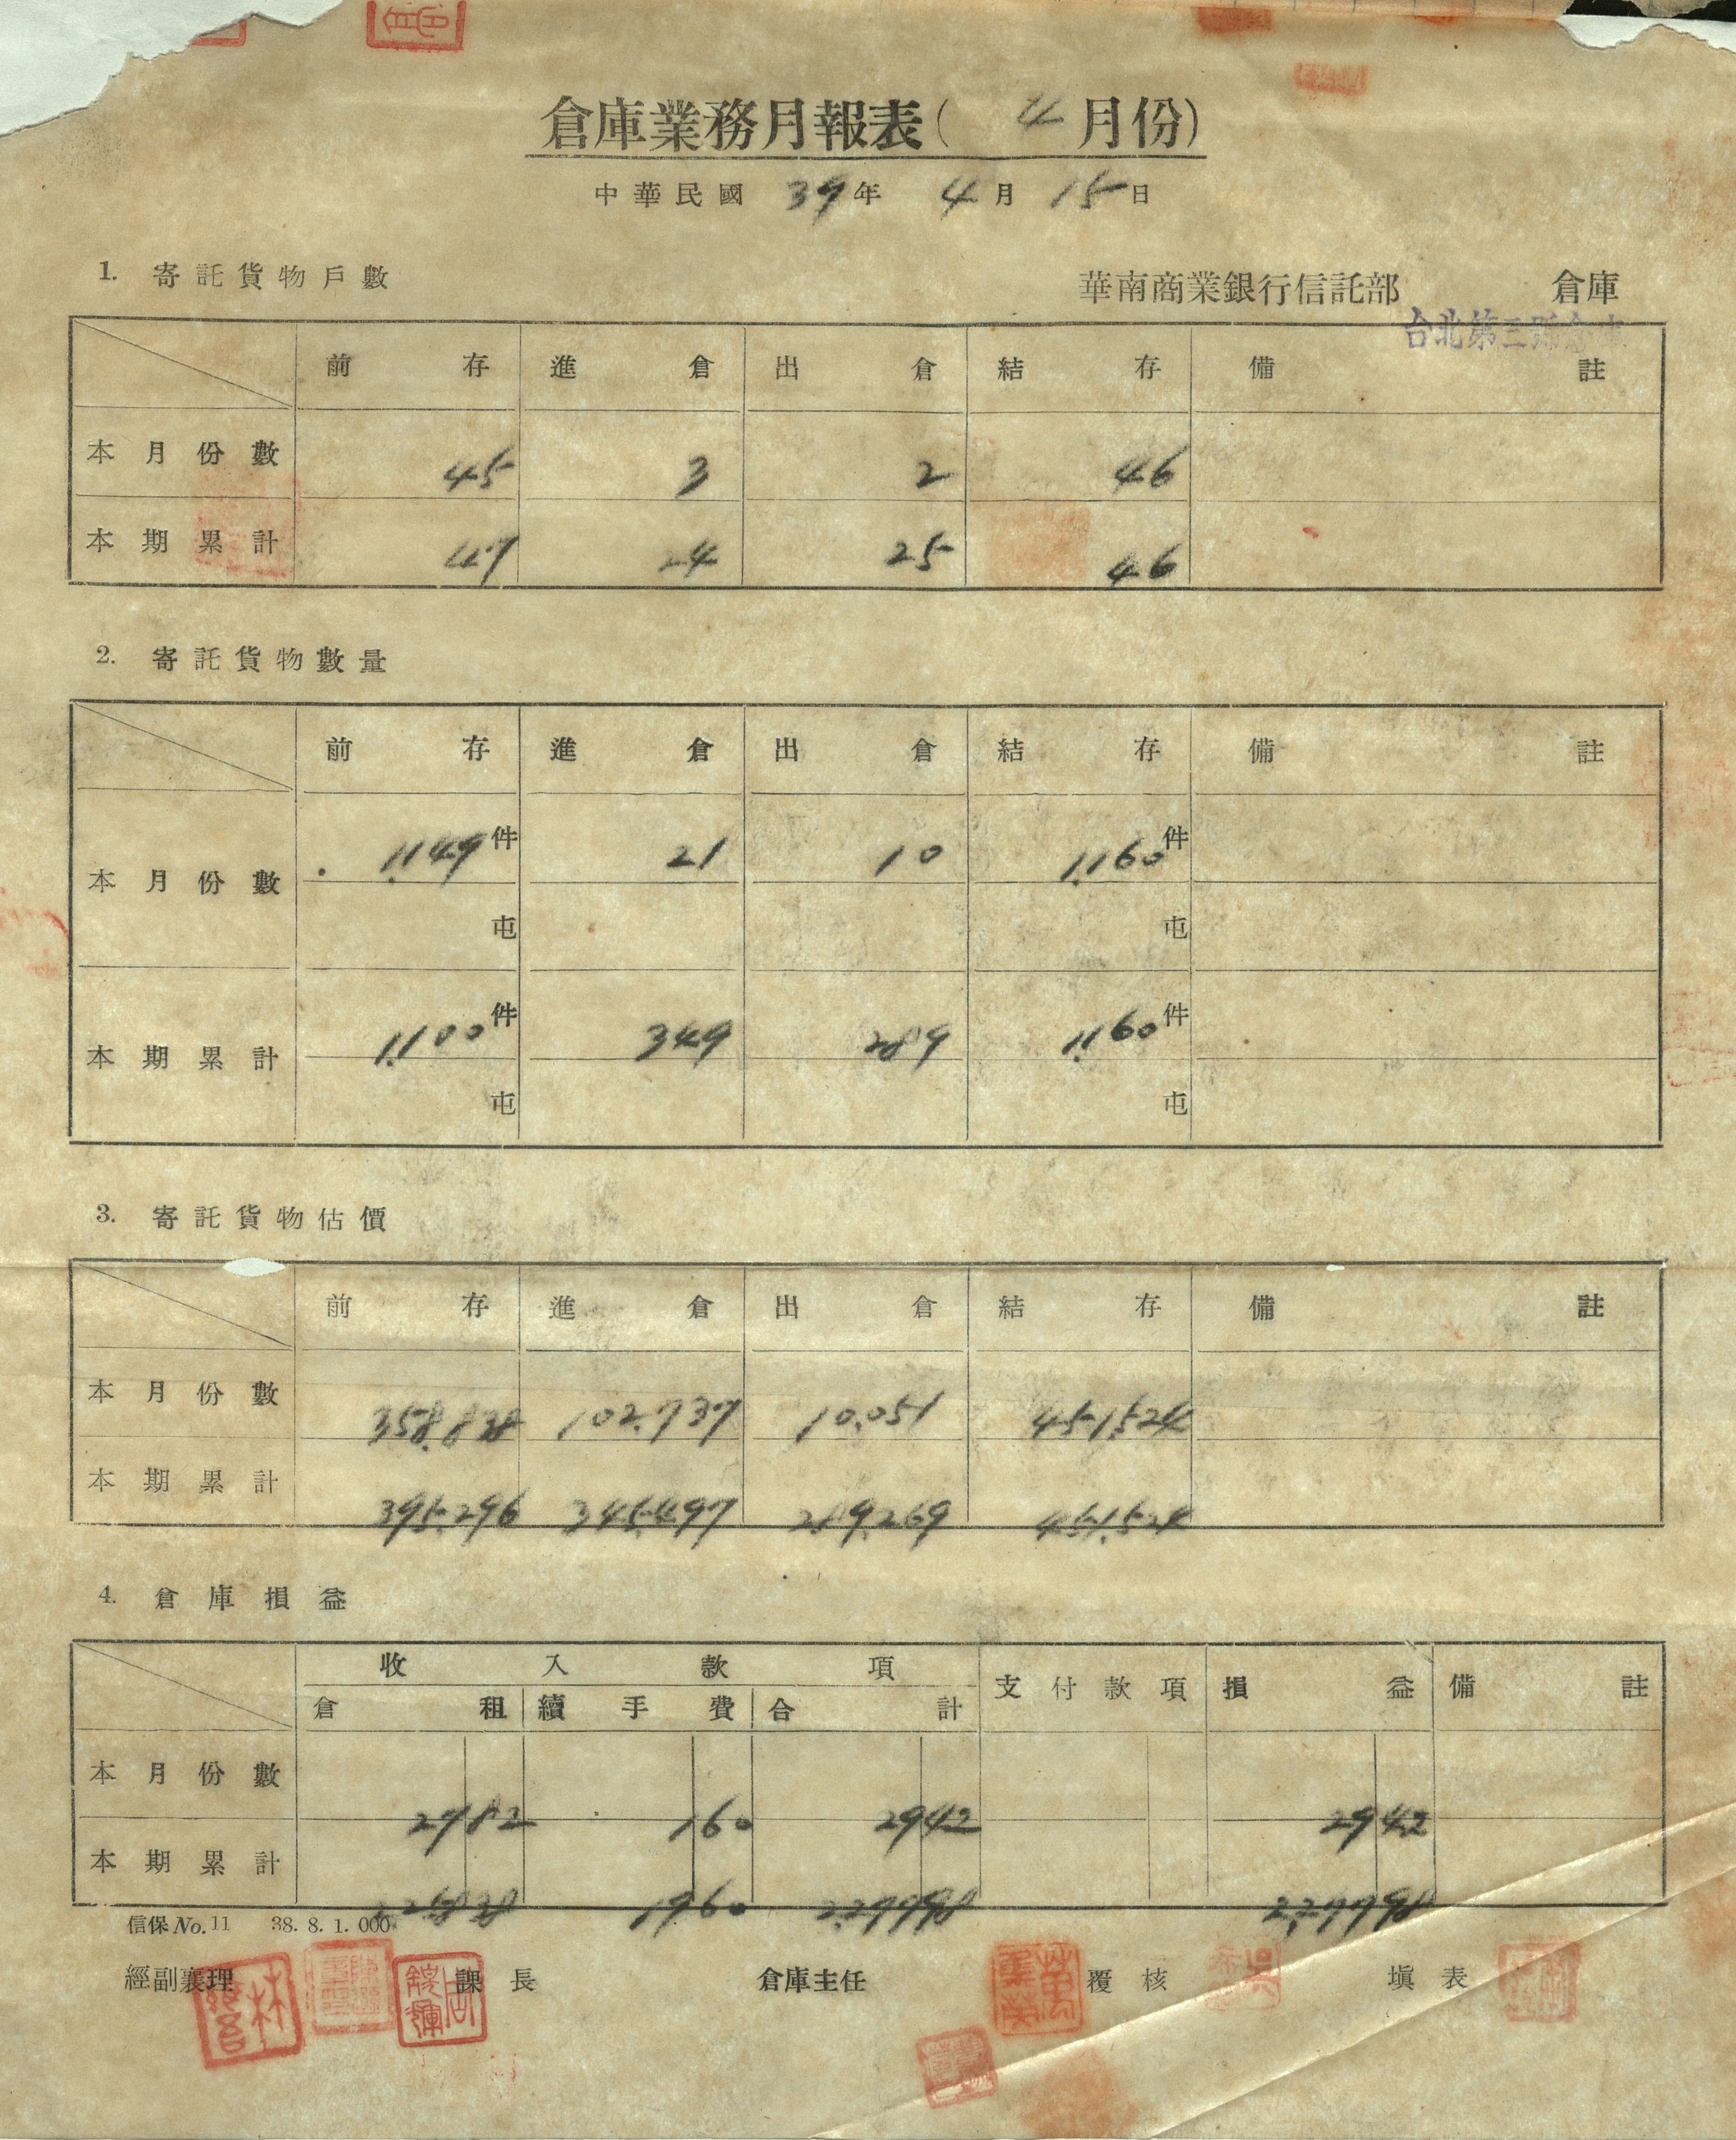 倉庫業務月報表( 4月份)
中華民國 39年 4月 15日
1. 寄託貨物戶數
華南商業銀行信託部 倉庫
台北第三號倉庫
前存 進倉 出倉 結存 備註
本月份數 45 3 2 46
本期累計 47 24 25 46
2. 寄託貨物數量
前存 進倉 出倉 結存 備註
本月份數 1,149件 21 10 1,160件
屯 屯
本期累計 1,100件 349 289 1,160件
屯 屯
3. 寄託貨物估價
前存 進倉 出倉 結存 備註
本月份數 358,838 102,737 10,051 451,524
本期累計 395,296 345,497 289,269 451,524
4. 倉庫損益
收入款項 支付款項 損益 備註
倉租 續手費 合計
本月份數 2782 160 2942 2942
本期累計 1960
信保 No. 11 38. 8. 1. 000
經副襄理 課長 倉庫主任 覆核 填表